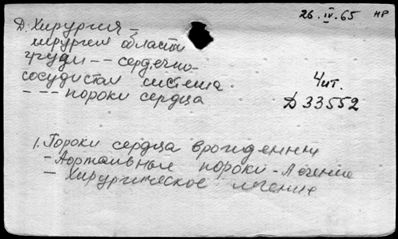 26.IV.65 НР
Д. Хирургия –
хирургия области
груди – – сердечно-
сосудистая система.
– – – пороки сердца
Чит.
Д 33552
1. Пороки сердца врожденные
– Аортальные пороки – Лечение
– Хирургическое лечение